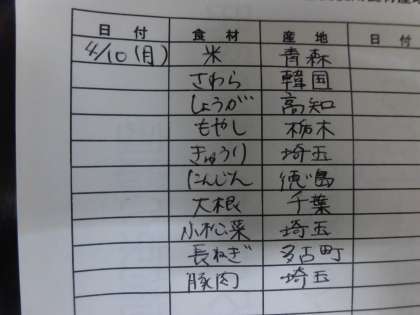 日付 食材 産地 日付
4/10(月) 米 青森
さわら 韓国
しょうが 高知
もやし 栃木
きゅうり 埼玉
にんじん 徳島
大根 千葉
小松菜 埼玉
長ねぎ 多古町
豚肉 埼玉